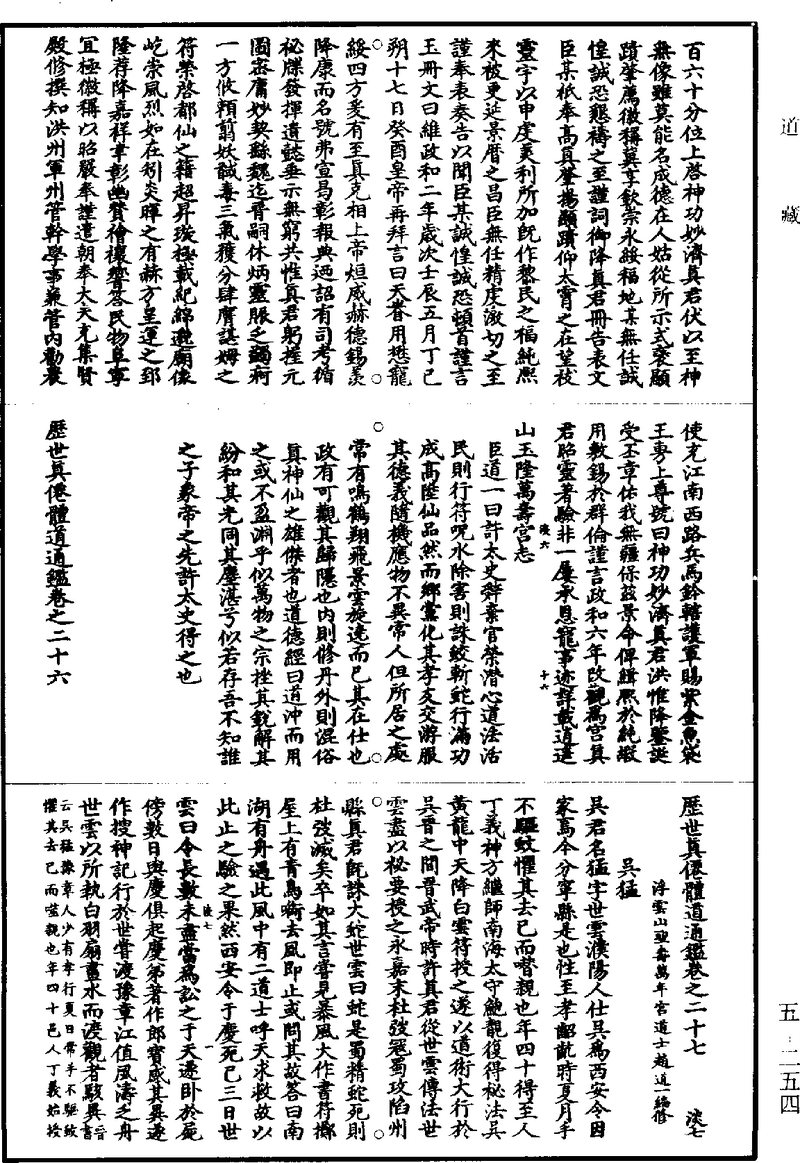 道藏
五‧二五四
百六十分位上啓神功妙濟真君伏以至神
無像雖莫能名成德在人姑從所示式褒顯
蹟肇薦徽稱冀享欽崇永綏福地某無任誠
惶誠恐懇禱之至謹詞御降真君冊告表文
臣某祇奉高真肇揚顯蹟仰太霄之在望枝
靈宇以申虔美利所加旣作黎民之福純熙
來被更延景曆之昌臣無任精虔激切之至
謹奉表奏告以聞臣某誠惶誠恐頓首謹言
玉冊文曰維政和二年歲次壬辰五月丁巳
朔十七日癸酉皇帝再拜言曰天眷用懋寵
綏四方爰有至真克相上帝烜威赫德錫羨
降康而名號弗宣曷彰報典迺詔有司考循
祕牒發揮遺懿垂示無窮共惟真君躬握元
圖密膺妙契繇魏迄晉嗣休炳靈賑乏蠲痾
一方攸賴翦妖馘毒三氣獲分肆膺諶姆之
符榮啓都仙之籍超昇琁極載紀綿邈廟像
屹崇風烈如在矧炎暉之有赫方皇運之郅
隆荐降嘉祥聿彰幽贊禬禳響答民物阜寧
宜極徽稱以昭嚴奉謹遣朝奉大夫充集賢
殿修撰知洪州軍州管幹學事兼管內勸農
使充江南西路兵馬鈐轄護軍賜紫金魚袋
王㪟上尊號曰神功妙濟真君洪惟降鑒誕
受丕章佑我無疆保茲景命俾緝熙於純嘏
用敷錫於群倫謹言政和六年改觀爲宮真
君昭靈著驗非一屢承恩寵事迹詳載逍遙
山玉隆萬壽宮志
淡六
十六
臣道一曰許太史辭棄官榮潛心道法活
民則行符呪水除害則誅蛟斬蛇行滿功
成高陞仙品然而鄉黨化其孝友交游服
其德義隨機應物不異常人但所居之處
常有鳴鶴翔飛景雲旋遶而已其在仕也
政有可觀其歸隱也內則修丹外則混俗
真神仙之雄傑者也道德經曰道沖而用
之或不盈淵乎似萬物之宗挫其銳解其
紛和其光同其塵湛兮似若存吾不知誰
之子象帝之先許太史得之也
歷世真僊體道通鑑卷之二十六
歷世真僊體道通鑑卷之二十七
淡七
浮雲山聖壽萬年宮道士趙道一編修
吳猛
吳君名猛字世雲濮陽人仕吳爲西安令因
家焉今分寧縣是也性至孝齠齔時夏月手
不驅蚊懼其去己而噆親也年四十得至人
丁義神方繼師南海太守鮑靚復得秘法吳
黃龍中天降白雲符授之遂以道術大行於
吳晉之間晉武帝時許真君從世雲傳法世
雲盡以秘要授之永嘉末杜弢寇蜀攻陷州
縣真君旣誅大蛇世雲曰蛇是蜀精蛇死則
杜弢滅矣卒如其言嘗見暴風大作書符擲
屋上有青鳥銜去風即止或問其故答曰南
湖有舟遇此風中有二道士呼天求救故以
此止之驗之果然西安令于慶死已三日世
淡七
一
雲曰令長數未盡當爲訟之于天遂臥於屍
傍數日與慶俱起慶弟著作郎寶感其異遂
作搜神記行於世嘗渡豫章江值風濤乏舟
世雲以所執白羽扇畫水而渡觀者駭異晉書
云吳猛豫章人少有孝行夏日常手不驅蚊
懼其去己而噬親也年四十邑人丁義始授